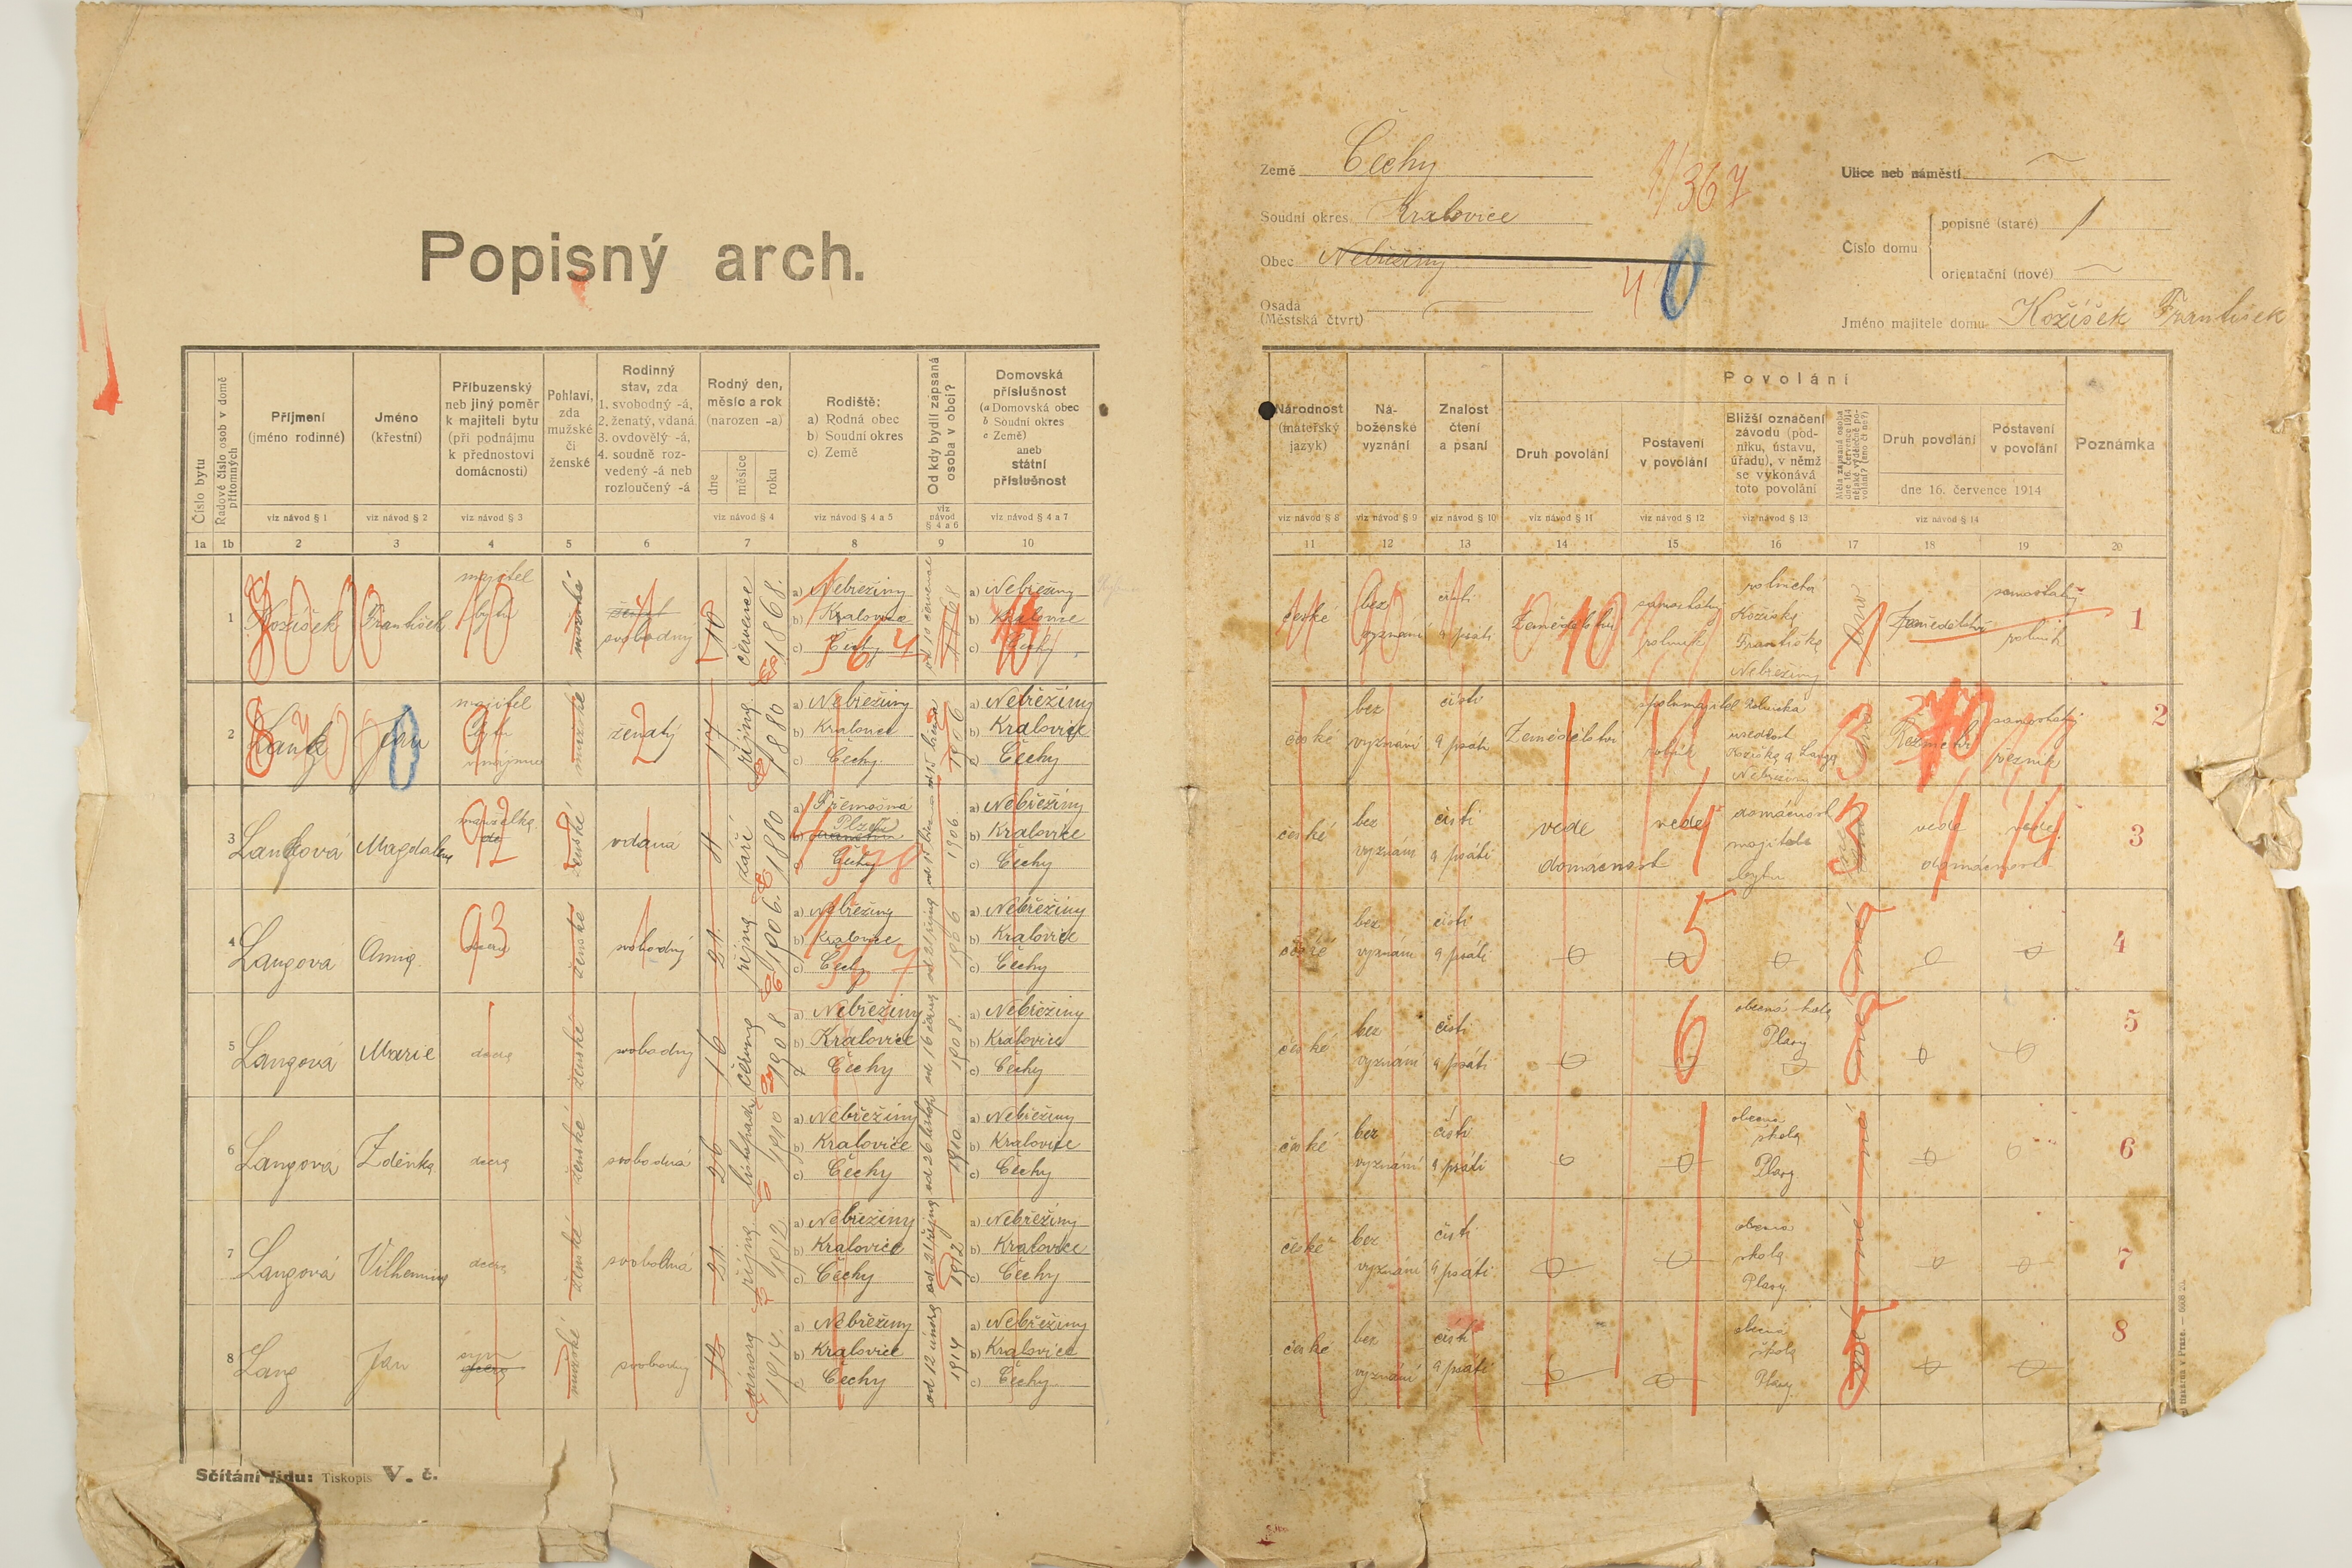 Popisný arch.
Země Čechy
Soudní okres Kralovice
Obec Nebřeziny
Osada
(Městská čtvrť)
1/367
40
Ulice neb náměstí
Číslo domu
popisné (staré) 1
orientační (nové)
Jméno majitele domu Kožíšek František
Číslo bytu
Řadové číslo osob v domě přítomných
Příjmení
(jméno rodinné)
viz návod § 1
Jméno
(křestní)
viz návod § 2
Příbuzenský
neb jiný poměr
k majiteli bytu
(při podnájmu
k přednostovi
domácnosti)
viz návod § 3
Pohlaví,
zda
mužské
či
ženské
Rodinný
stav, zda
1. svobodný -á,
2. ženatý, vdaná
3. ovdovělý -á,
4. soudně roz-
vedený -á neb
rozloučený -á
Rodný den,
měsíc a rok
(narozen -a)
dne
měsíce
roku
viz návod § 4
Rodiště:
a) Rodná obec
b) Soudní okres
c) Země
viz návod § 4 a 5
Od kdy bydlí zapsaná
osoba v obci?
viz
návod
§ 4 a 6
Domovská
příslušnost
(a Domovská obec
b Soudní okres
c Země)
aneb
státní
příslušnost
viz návod § 4 a 7
1a 1b 2 3 4 5 6 7 8 9 10
Národnost
(mateřský
jazyk)
viz návod § 8
Ná-
boženské
vyznání
viz návod § 9
Znalost
čtení
a psaní
viz návod § 10
Povolání
Druh povolání
viz návod § 11
Postavení
v povolání
viz návod § 12
Bližší označení
závodu (pod-
niku, ústavu,
úřadu), v němž
se vykonává
toto povolání
viz návod § 13
Měla zapsaná osoba
dne 16. července 1914
nějaké výdělečné po-
volání? (ano či ne?)
Druh povolání
Postavení
v povolání
dne 16. července 1914
viz návod § 14
Poznámka
11 12 13 14 15 16 17 18 19 20
1 Kožíšek František majitel bytu mužské ženat svobodný 10 července 1868.
a) Nebřeziny
b) Kralovice
c) Čechy
od 10 července 1868
a) Nebřeziny
b) Kralovice
c) Čechy
české bez vyznání čísti a psáti Zemědělství samostatný rolník
rolnická
Kožíška
Františka
Nebřeziny
ano Zemědělství samostatný rolník 1
2 Lang Jan majitel bytu ženatý mužské 17 října 1880
a) Nebřeziny
b) Kralovice
c) Čechy.
1906
a) Nebřeziny
b) Kralovice
c) Čechy
české bez vyznání čísti a psáti Zemědělství spolumajitel rolník
rolnická
usedlost
Kožíška a Langa
Nebřeziny
samostatný řezník 2
3 Langová Magdalena manželka ženské vdaná září 1880
a) Třemošná
b) Plzeň
c) Čechy
1906
a) Nebřeziny
b) Kralovice
c) Čechy
české bez vyznání čísti a psáti vede domácnost vede
domácnost
majitele
bytu
vede domácnost vede 3
4 Langová Anna dcera ženské svobodný 21. října 1906.
a) Nebřeziny
b) Kralovice
c) Čechy
od 21 října 1906
a) Nebřeziny
b) Kralovice
c) Čechy
české bez vyznání čísti a psáti 4
5 Langová Marie dcera ženské svobodný 16 června 1908
a) Nebřeziny
b) Kralovice
c) Čechy
od 16 června 1908.
a) Nebřeziny
b) Kralovice
c) Čechy
české bez vyznání čísti a psáti
obecná škola
Plasy
5
6 Langová Zdeňka dcera ženské svobodná 26 listopadu 1910
a) Nebřeziny
b) Kralovice
c) Čechy
od 26 listop 1910
a) Nebřeziny
b) Kralovice
c) Čechy
české bez vyznání čísti a psáti
obecná
škola
Plasy
6
7 Langová Vilhemina dcera ženské svobodná 21. října 1912
a) Nebřeziny
b) Kralovice
c) Čechy
od 21 října 1912
a) Nebřeziny
b) Kralovice
c) Čechy
české bez vyznání čísti a psáti
obecná
škola
Plasy.
ne 7
8 Lang Jan syn dcera mužské svobodný 12 února 1914.
a) Nebřeziny
b) Kralovice
c) Čechy
od 12 února 1914
a) Nebřeziny
b) Kralovice
c) Čechy
české bez vyznání čísti a psáti
obecná
škola
Plasy.
8
Sčítání lidu: Tiskopis V. č.